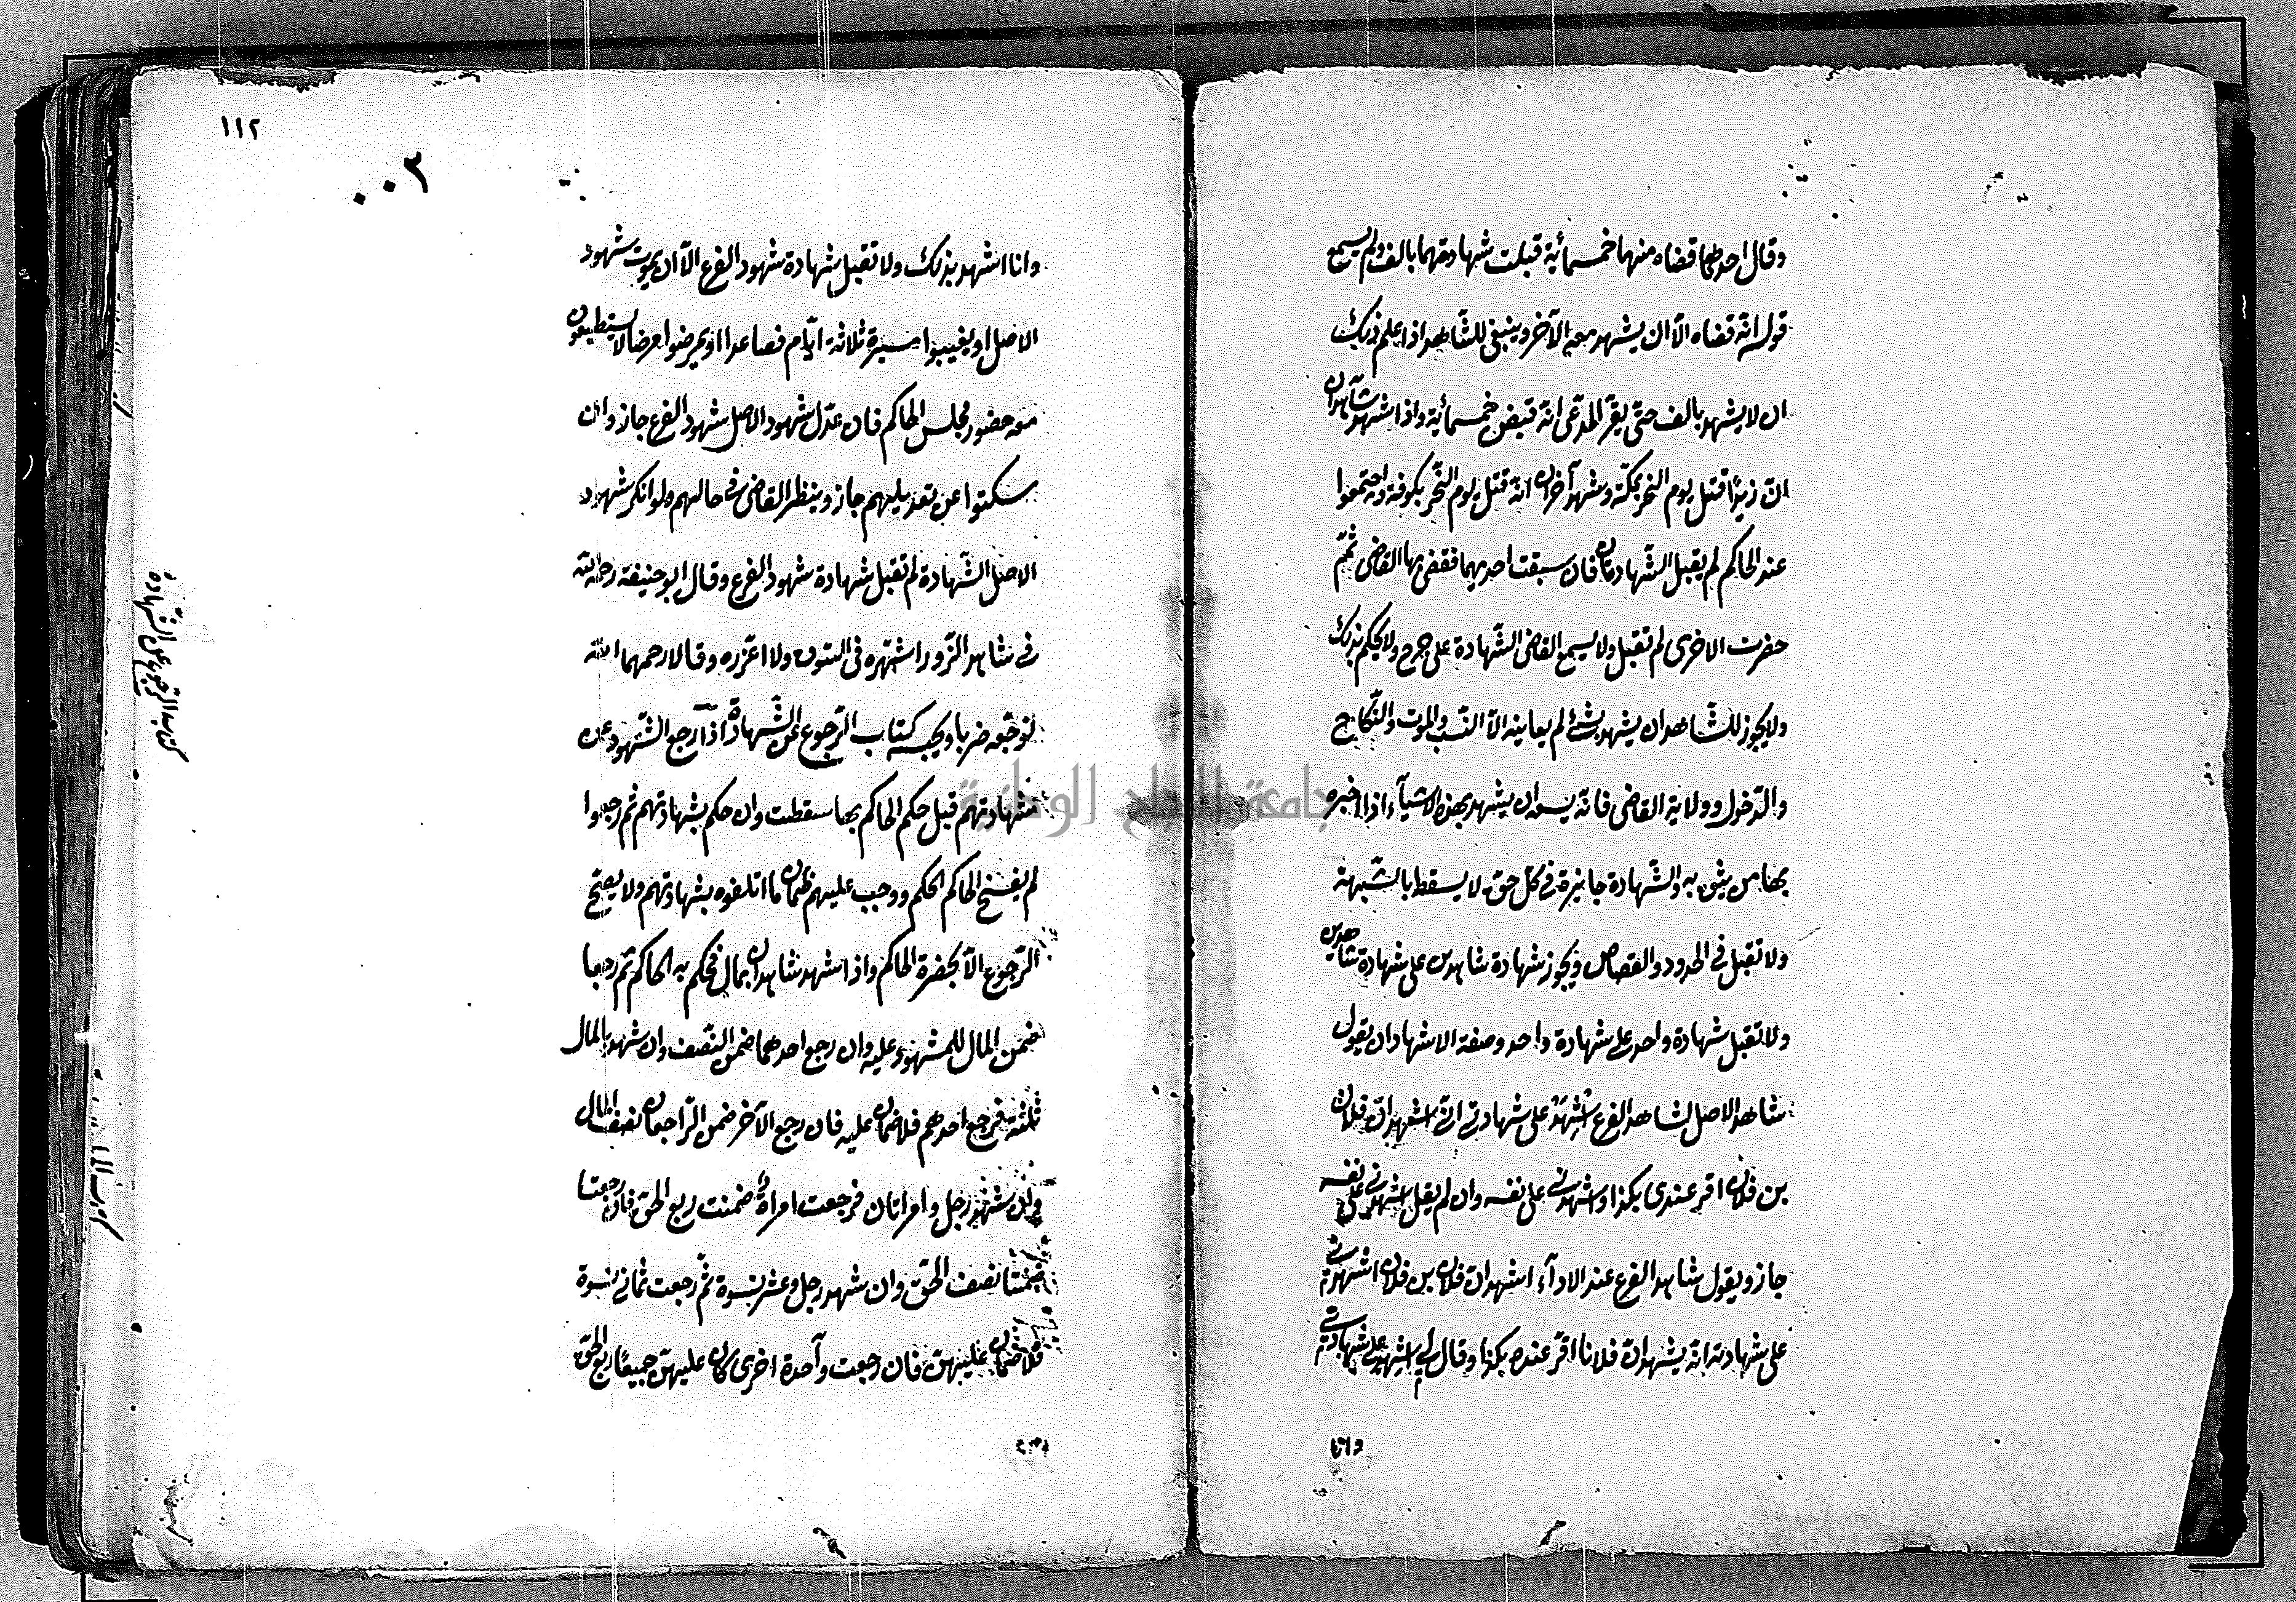 وقال احدهما قضاه منها خمسمائة قبلت شهادتهما بالف ولم يسمع
قوله انه قضاه الا ان يشهد معه الآخر وينبغي للشاهد اذا علم ذلك
ان لا يشهد بالف حتى يقر المدعى انه قبض خمسمائة واذا شهد شاهدان
ان زيدا قتل يوم النحر بمكة وشهد آخران انه قتل يوم النحر بكوفة واجتمعوا
عند الحاكم لم يقبل الشهادتان فان سبقت احديهما فقضى بها القاضى ثم
حضرت الاخرى لم تقبل ولا يسمع القاضى الشهادة على جرح ولا يحكم بذلك
ولا يجوز للشاهد ان يشهد بشئ لم يعاينه الا النسب والموت والنكاح
والدخول وولاية القاضى فانه يسعه ان يشهد بهذه الاشيآء اذا اخبره
بها من يثق به والشهادة جايزة في كل حق لا يسقط بالشبهة
ولا تقبل في الحدود والقصاص ويجوز شهادة شاهدين على شهادة شاهدين
ولا تقبل شهادة واحد على شهادة واحد وصفة الاشهاد ان يقول
شاهد الاصل لشاهد الفرع اشهد على شهادتي اني اشهد ان فلان
بن فلان اقر عندى بكذا واشهدني على نفسه وان لم يقل اشهدني على نفسه
جاز ويقول شاهد الفرع عند الادآء اشهد ان فلان بن فلان اشهدني
على شهادته انه يشهد ان فلانا اقر عنده بكذا وقال لي اشهد على شهادتي
وانا
١١٢
٢٠٠
وانا اشهد بذلك ولا تقبل شهادة شهود الفرع الا ان يموت شهود
الاصل او يغيبوا مسيرة ثلاثة ايام فصاعدا او يمرضوا مرضا لا يستطيعون
معه حضور مجلس الحاكم فان عدل شهود الاصل شهود الفرع جاز وان
سكتوا عن تعديلهم جاز وينظر القاضى في حالهم ولو انكر شهود
الاصل الشهادة لم تقبل شهادة شهود الفرع وقال ابو حنيفة رحمه الله
في شاهد الزور اشهره في السوق ولا اعزره وقالا رحمهما الله
نوجعه ضربا ونحبسه كتاب الرجوع عن الشهادة اذا رجع الشهود عن
شهادتهم قبل حكم الحاكم بها سقطت وان حكم بشهادتهم ثم رجعوا
لم يفسخ الحاكم الحكم ووجب عليهم ضمان ما اتلفوه بشهادتهم ولا يصح
الرجوع الا بحضرة الحاكم واذا شهد شاهدان بمال فحكم به الحاكم ثم رجعا
ضمن المال للمشهود عليه وان رجع احدهما ضمن النصف وان شهد بالمال
ثلثة فرجع احدهم فلا ضمان عليه فان رجع الآخر ضمن الراجعان نصف المال
وان شهد رجل وامراتان فرجعت امراة ضمنت ربع الحق فان رجعتا
ضمنتا نصف الحق وان شهد رجل وعشر نسوة ثم رجعت ثماني نسوة
فلا ضمان عليهن فان رجعت واحدة اخرى كان عليهن جميعا ربع الحق